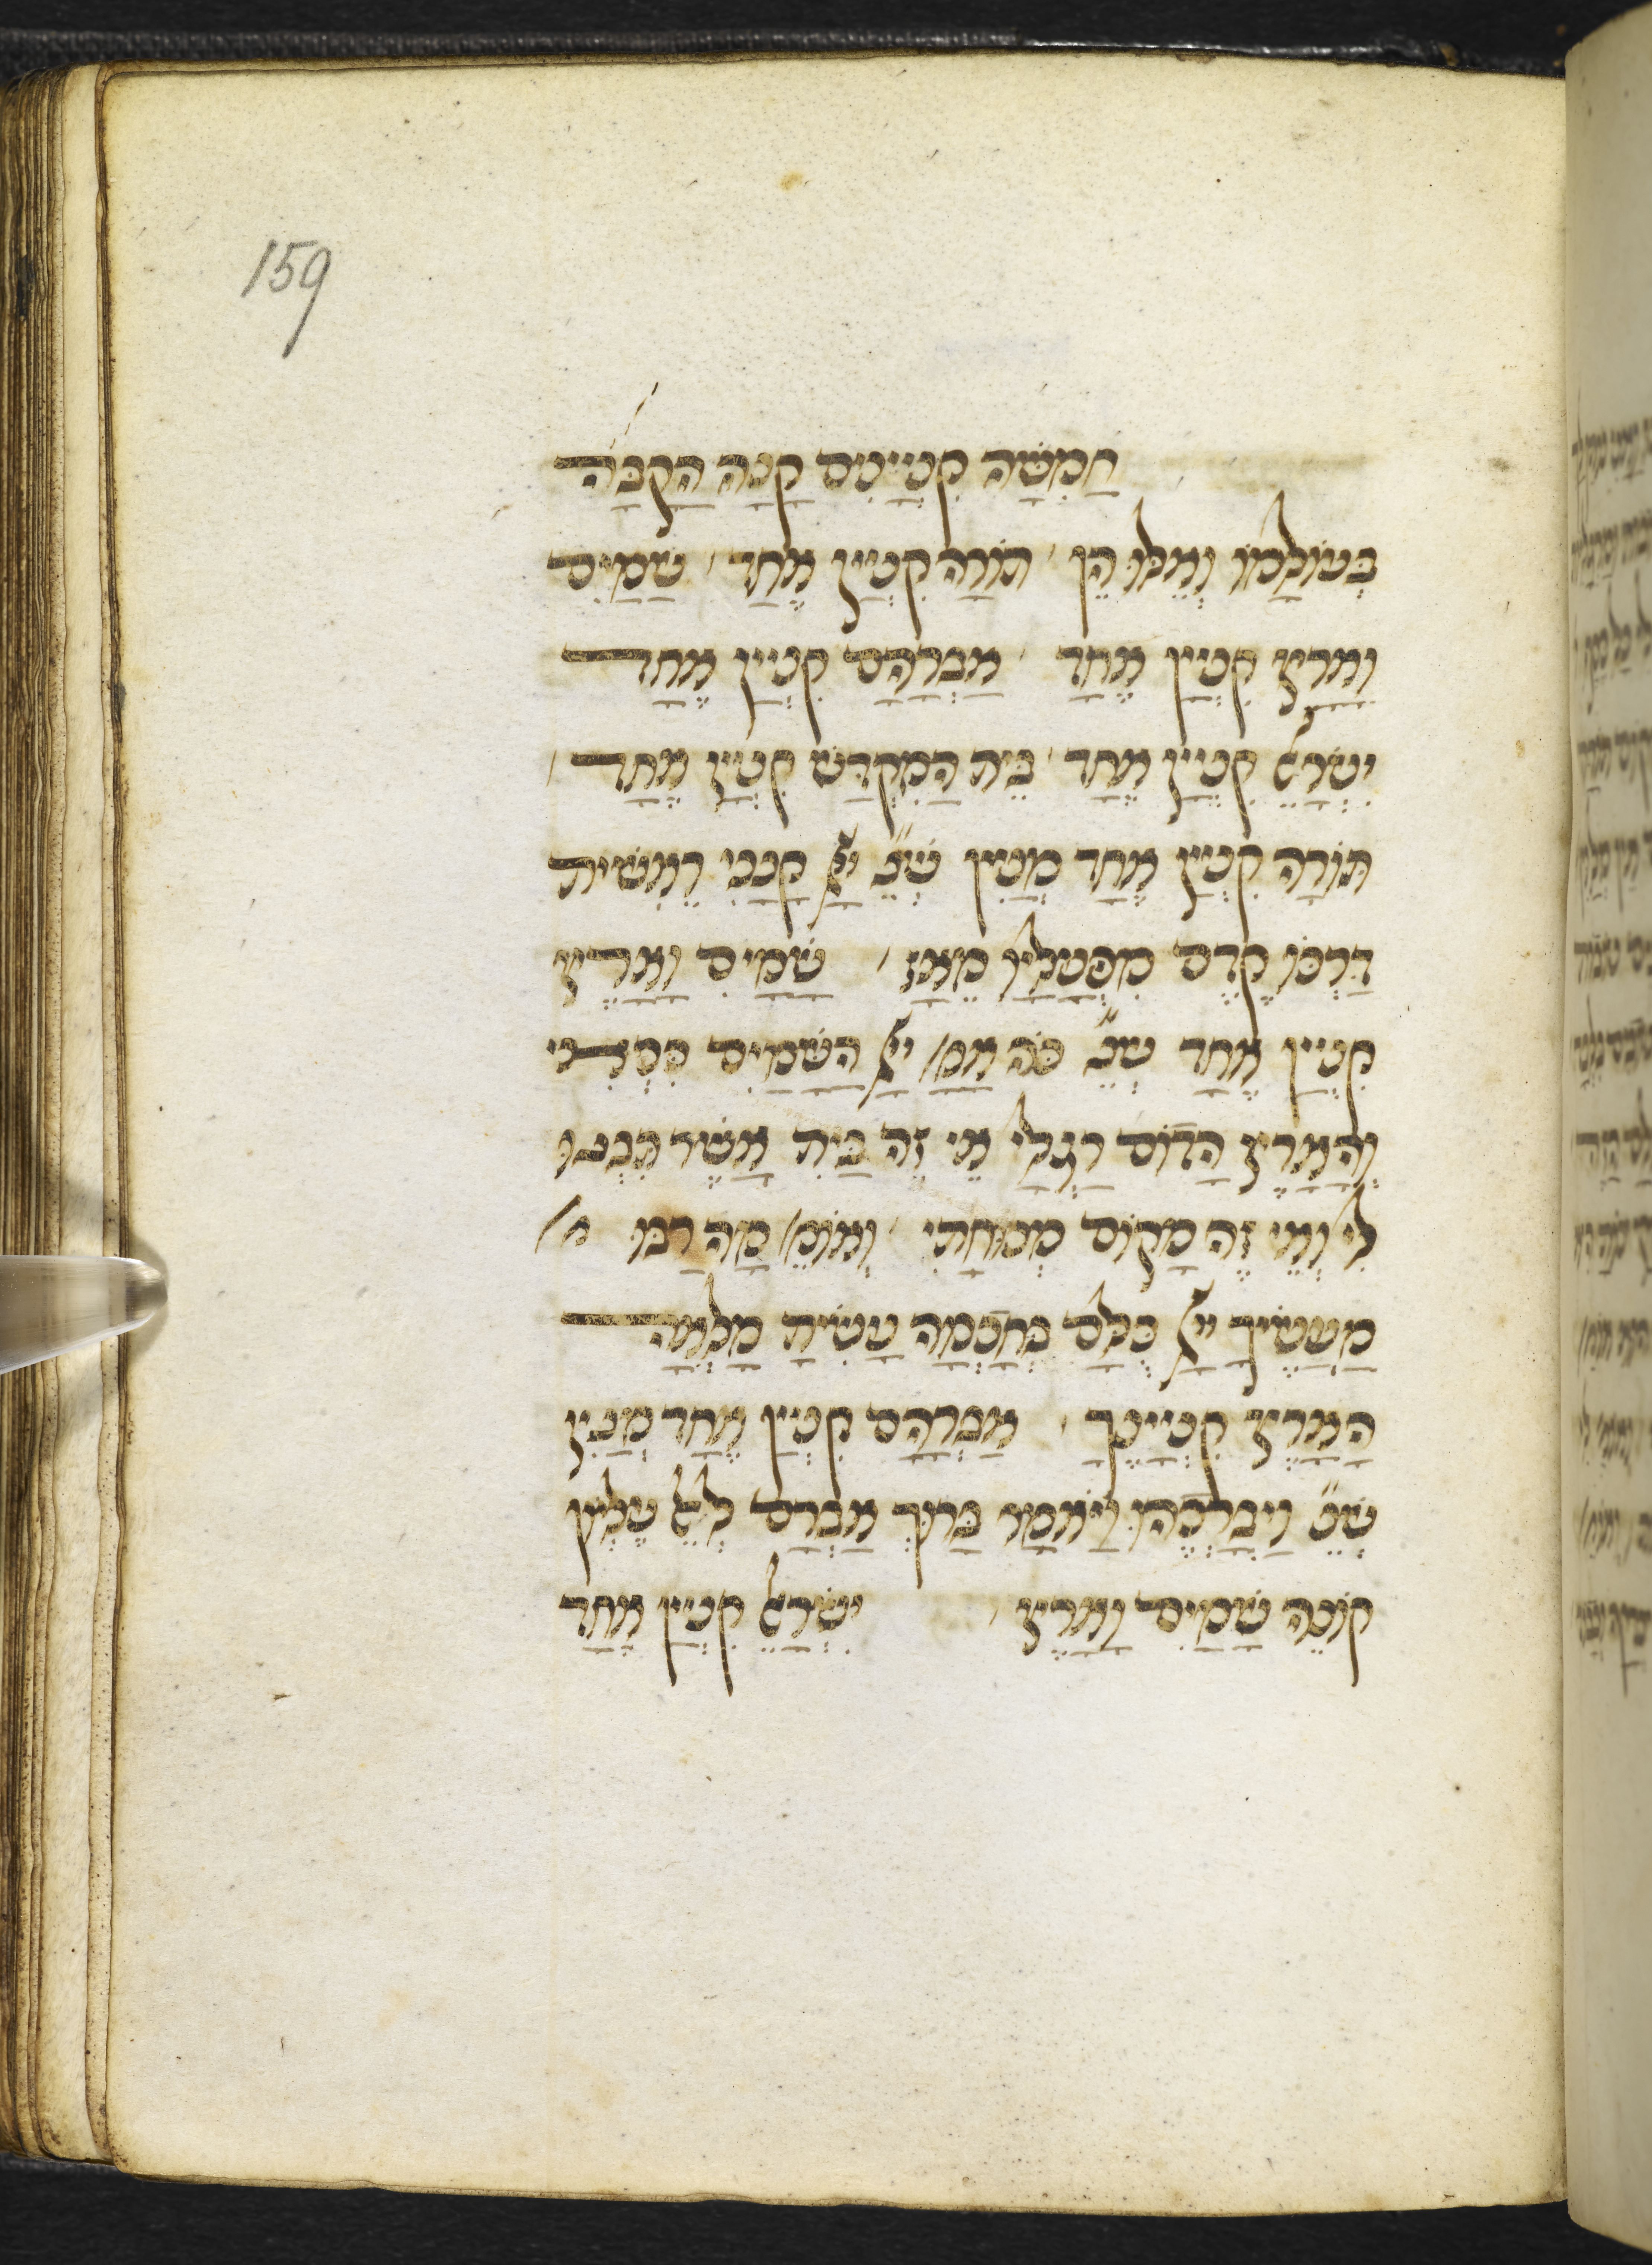 159
חֲמִשָּׁה קִנְיָינִים קָנָה הַקָבָּ"ה
בְּעוֹלָמוֹ וְאֵלּוּ הֵן, תּוֹרָה קִנְיָין אֶחָד, שָׁמַיִם
וָאָרֶץ קִנְיָין אֶחָד, אַבְרָהָם קִנְיָין אֶחָד
יִשְׂרָאֵל קִנְיָין אֶחָד, בֵּית הַמִקְדָּשׁ קִנְיָין אֶחָד,
תּוֹרָה קִנְיָין אֶחָד מְנַיִין שֶׁנֶּ' יי' קָנָנִי רֵאשִׁית
דַּרְכּוֹ קֶדֶם מִפְעָלָיו מֵאָז, שָׁמַיִם וָאָרֶץ
קִנְיָין אֶחָד שֶׁנֶּ' כֹּה אָמַ' יי' הַשָּׁמַיִם כִּסְאִי
וְהָאָרֶץ הֲדוֹם רַגְלָי אֵי זֶה בַיִת אֲשֶׁר תִּבְנוּ
לִי וְאֵי זֶה מָקוֹם מְנוּחָתִי, וְאוֹמֵ' מָה רַבּוּ
מַעֲשֶׂיךָ יי' כֻּלָּם בְּחָכְמָה עָשִׂיתָ מָלְאָה
הָאָרֶץ קִנְיָינֶךָ, אַבְרָהָם קִנְיָין אֶחָד מְנַיִין
שֶׁנֶּ' וַיְבָרְכֵהוּ וַיֹּאמַר בָּרוּךְ אַבְרָם לְאֵל עֶלְיוֹן
קוֹנֵה שָׁמַיִם וָאָרֶץ, יִשְׂרָאֵל קִנְיָין אֶחָד